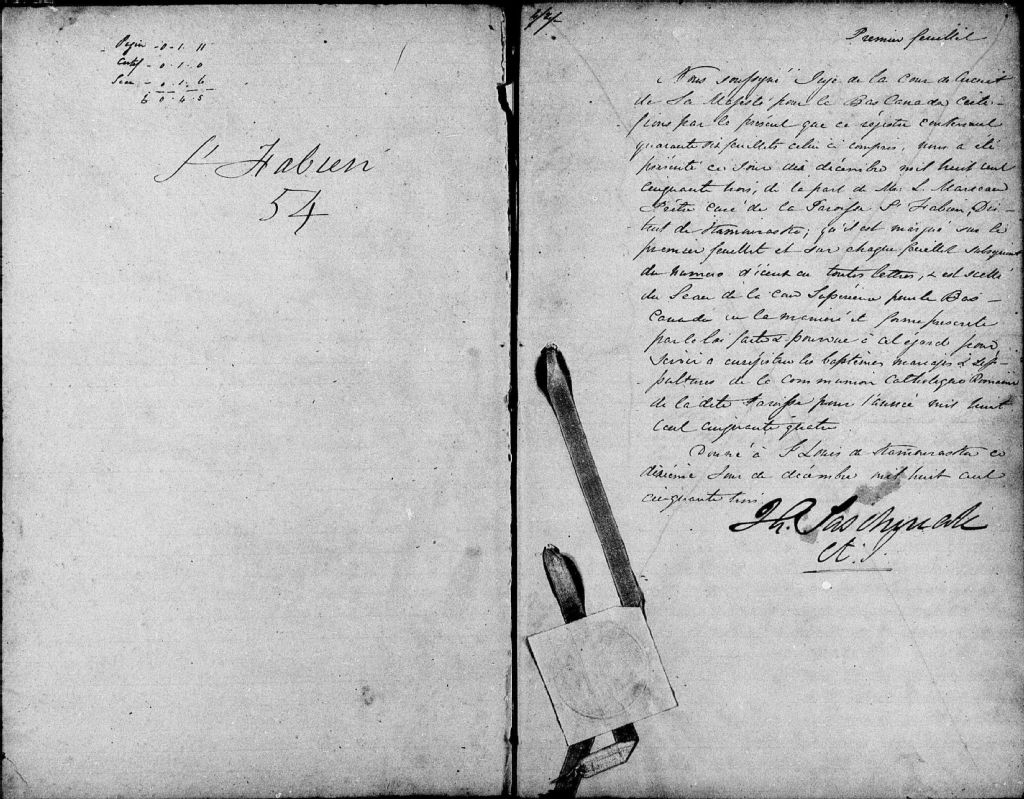 Papier - 0 . 1 . 11
Certif - 0 . 1 . 0
Sceau - 0 . 1 . 6
£ 0 . 4 . 5
St Fabien
54
Premier feuillet
Nous soussigné Juge de la Cour de Circuit
de Sa Majesté pour le Bas Canada Certi-
fions par le présent que ce régistre contenant
quarante six feuillets celui ci compris, nous a été
présenté ce jour dix décembre mil huit cent
cinquante trois, de la part de Mr L. Marceau
Prêtre curé de la Paroisse St Fabien, Dis-
trict de Kamouraska; qu'il est marqué sur le
premier feuillet et sur chaque feuillet subséquent
du numero d'iceux en toutes lettres, & est scellé
du Sceau de la Cour Supérieure pour le Bas-
Canada en la manière et forme prescrite
par la loi faite & pourvue à cet égard pour
servir à enregistrer les baptêmes mariages & sé-
pultures de la Communion Catholique Romaine
de la dite Paroisse pour l'année mil huit
cent cinquante quatre.
Donné à St Louis de Kamouraska ce
dixième jour de décembre mil huit cent
cinquante trois
Taschereau